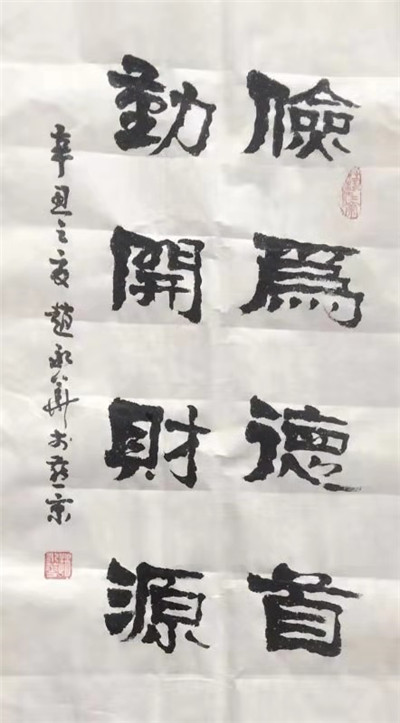 儉爲德首
勤開財源
辛丑之夏趙承華於燕京